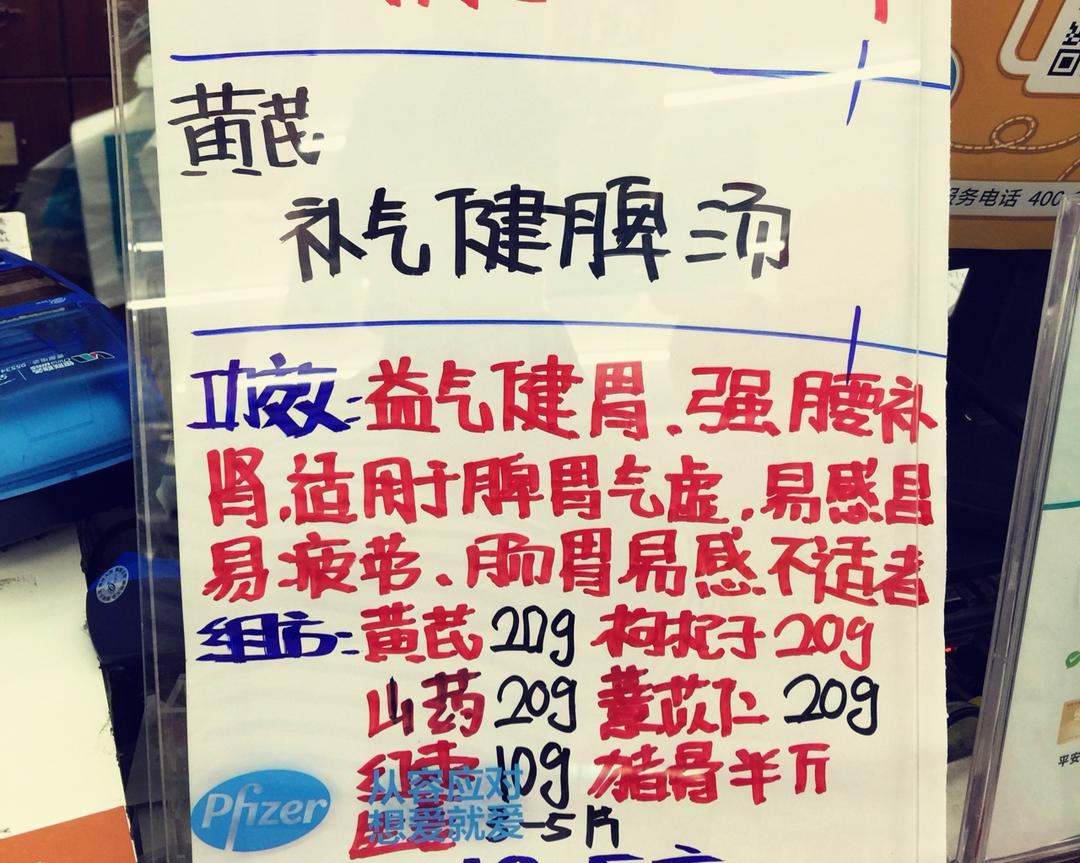 黄芪
补气健脾汤
功效:益气健胃、强腰补
肾.适用于脾胃气虚.易感冒
易疲劳、肠胃易感不适者
组方:黄芪20g 枸杞子20g
山药20g 薏苡仁20g
红枣10g 猪骨半斤
5片
Pfizer
从容应对
想爱就爱
服务电话 400
平安
95534